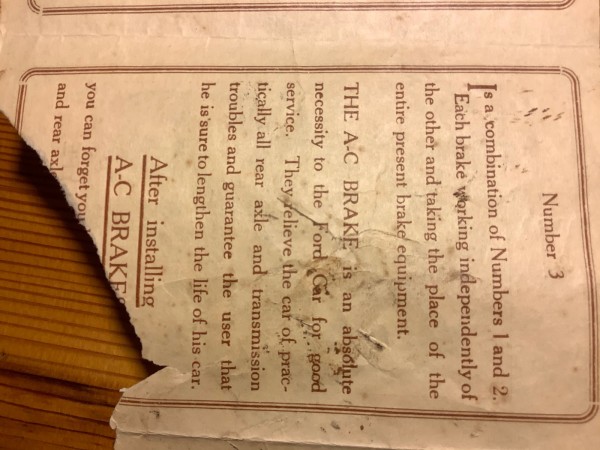 Number 3
Is a combination of Numbers 1 and 2.
Each brake working independently of
the other and taking the place of the
entire present brake equipment.
THE A-C BRAKE is an absolute
necessity to the Ford Car for good
service. They relieve the car of prac-
tically all rear axle and transmission
troubles and guarantee the user that
he is sure to lengthen the life of his car.
After installing
A-C BRAKE
you can forget you
and rear